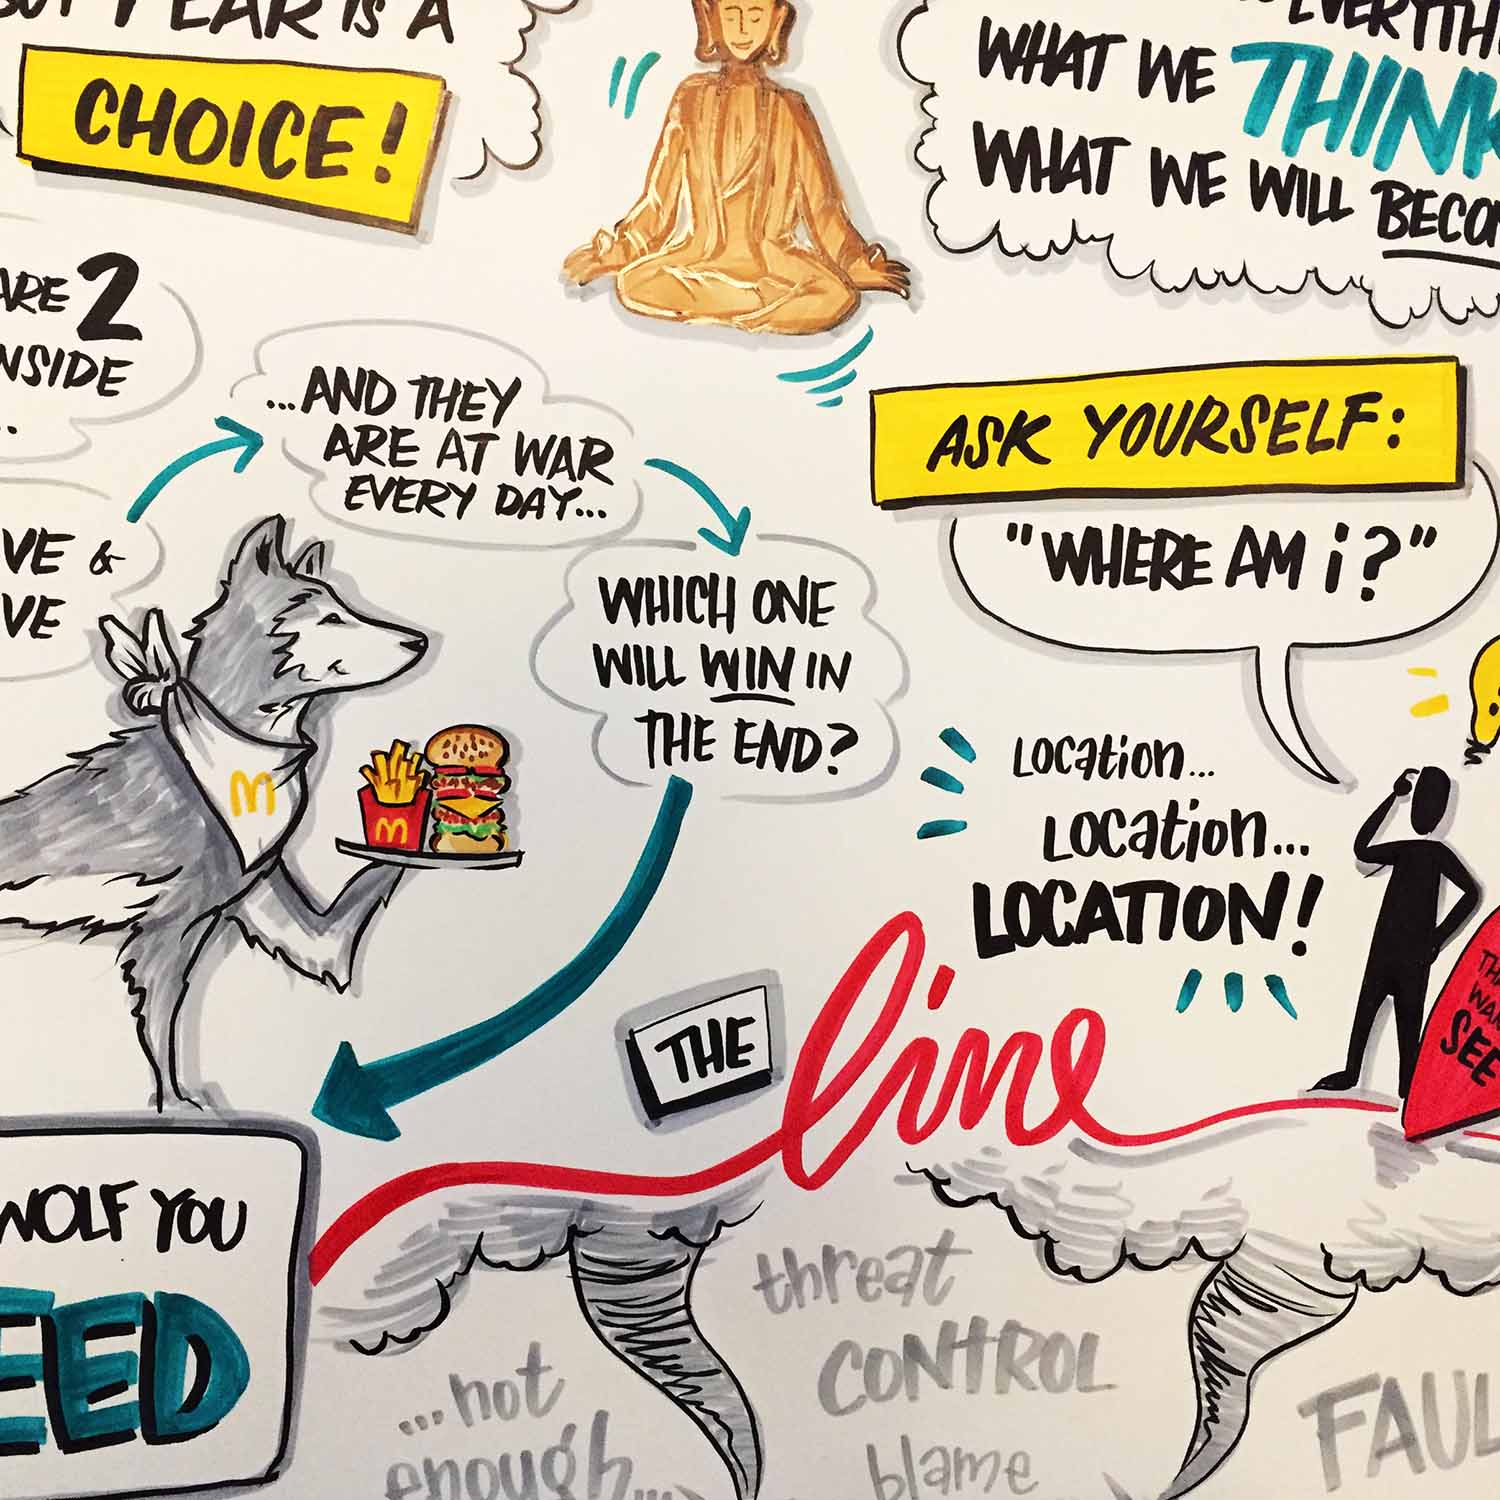 FEAR IS A
CHOICE!
WHAT WE THINK
WHAT WE WILL
ARE 2
INSIDE
...AND THEY
ARE AT WAR
EVERY DAY...
VE &
VE
WHICH ONE
WILL WIN IN
THE END?
ASK YOURSELF:
"WHERE AM i?"
Location...
Location...
LOCATION!
M
M
THE line
SEE
WOLF YOU
EED
threat
CONTROL
blame
...not
enough...
FAUL